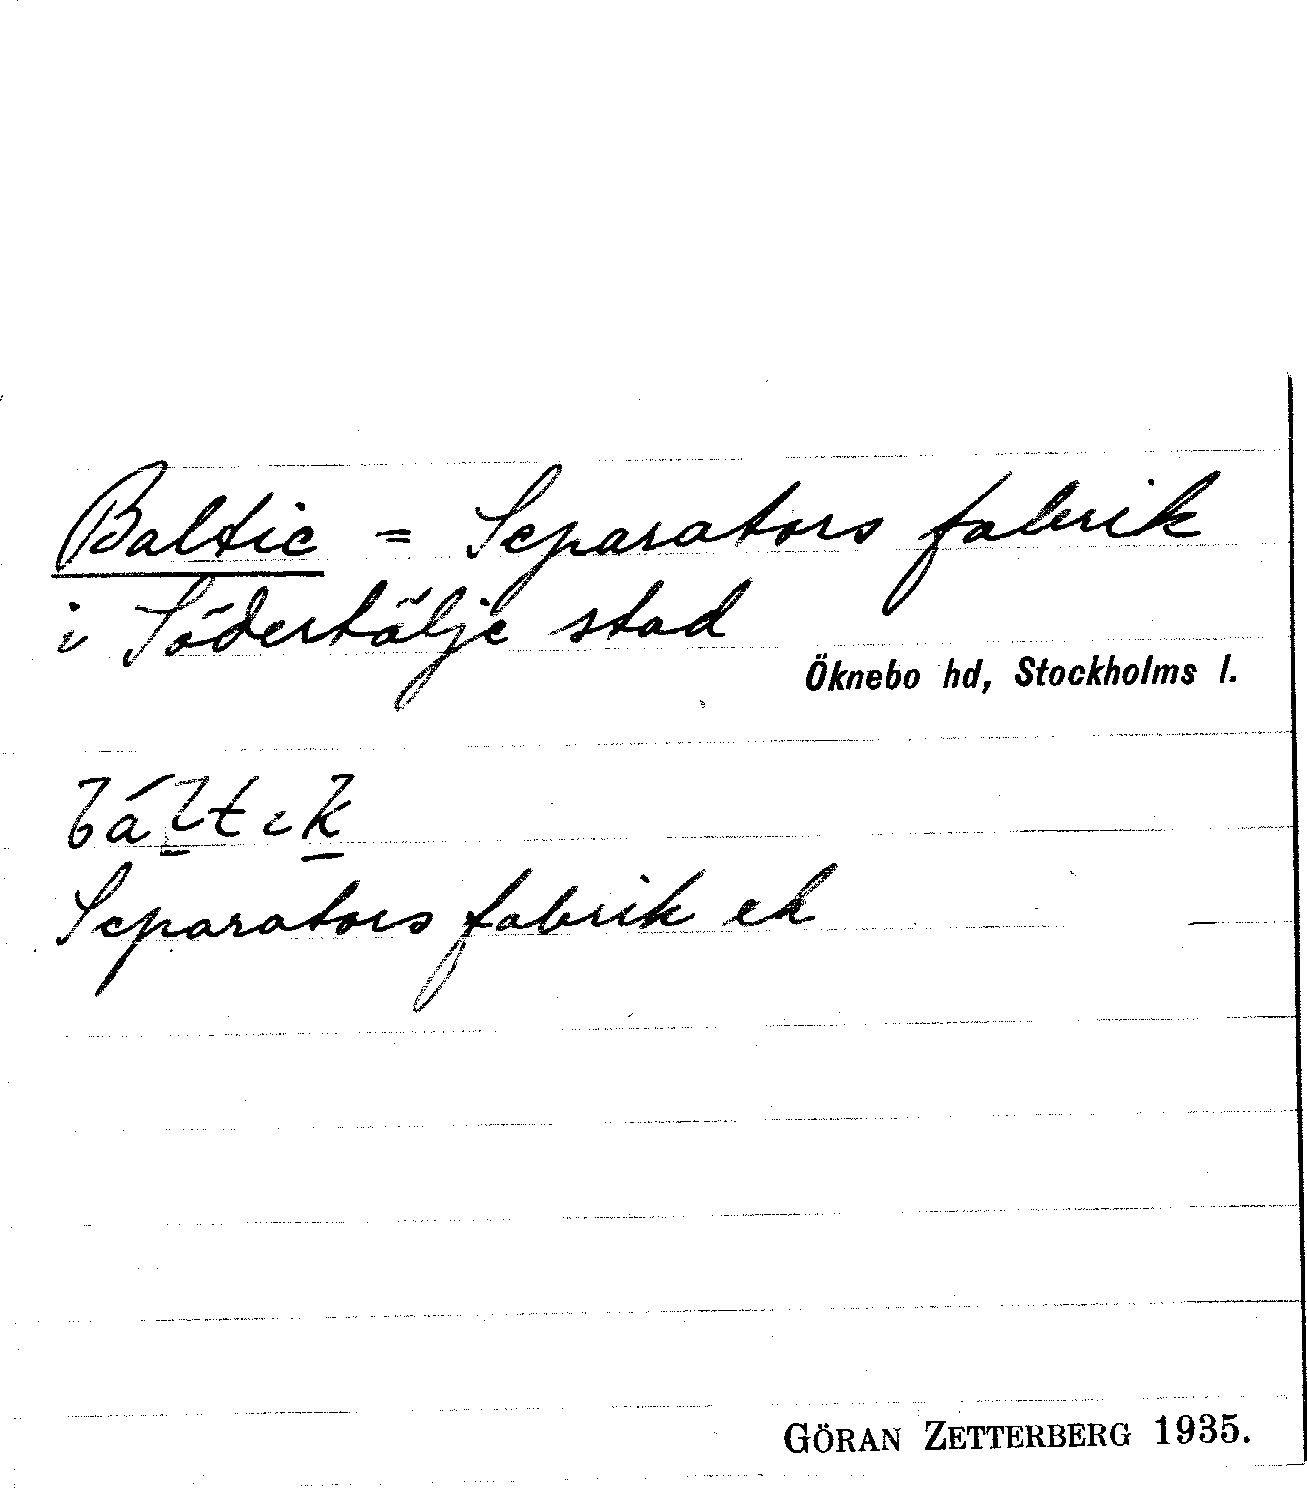 Baltic = Separators fabrik
i Södertälje stad
Öknebo hd, Stockholms l.
báltık
Separators fabrik ek
GÖRAN ZETTERBERG 1935.